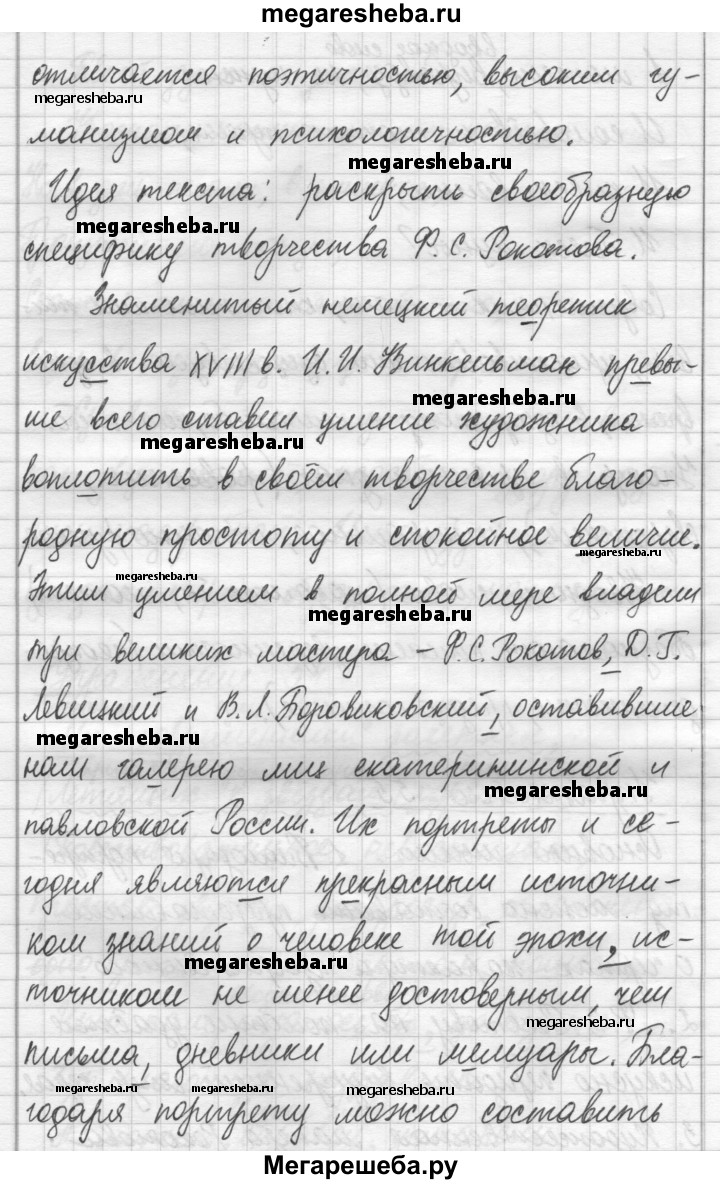 megaresheba.ru
отличается поэтичностью, высоким гу-
megaresheba.ru
манизмом и психологичностью.
megaresheba.ru
Идея текста: раскрыть своеобразную
megaresheba.ru
специфику творчества Ф. С. Рокотова.
Знаменитый немецкий теоретик
искусства XVIII в. И. И. Винкельман превы-
megaresheba.ru
ше всего ставил умение художника
megaresheba.ru
воплотить в своём творчестве благо-
родную простоту и спокойное величие.
megaresheba.ru
megaresheba.ru
Этим умением в полной мере владели
megaresheba.ru
три великих мастера – Ф. С. Рокотов, Д. Г.
Левицкий и В. Л. Боровиковский, оставившие
megaresheba.ru
нам галерею лиц екатерининской и
megaresheba.ru
павловской России. Их портреты и се-
годня являются прекрасным источни-
ком знаний о человеке той эпохи, ис-
megaresheba.ru
точником не менее достоверным, чем
megaresheba.ru
письма, дневники или мемуары. Бла-
megaresheba.ru megaresheba.ru megaresheba.ru
годаря портрету можно составить
Мегарешеба.ру